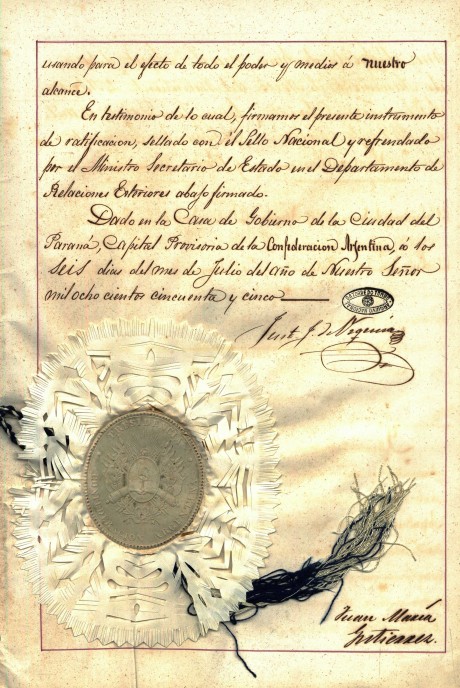 usando para el efecto de todo el poder y medios á nuestro
alcance.
En testimonio de lo cual, firmamos el presente instrumento
de ratificacion, sellado con el Sello Nacional y refrendado
por el Ministro Secretario de Estado en el Departamento de
Relaciones Exteriores abajo firmado.
Dado en la Casa de Gobierno de la Ciudad del
Paraná, Capital Provisoria de la Confederacion Argentina, á los
seis dias del mes de Julio del año de Nuestro Señor
mil ocho cientos cincuenta y cinco
Just. J. de Urquiza
Juan María
Gutierrez